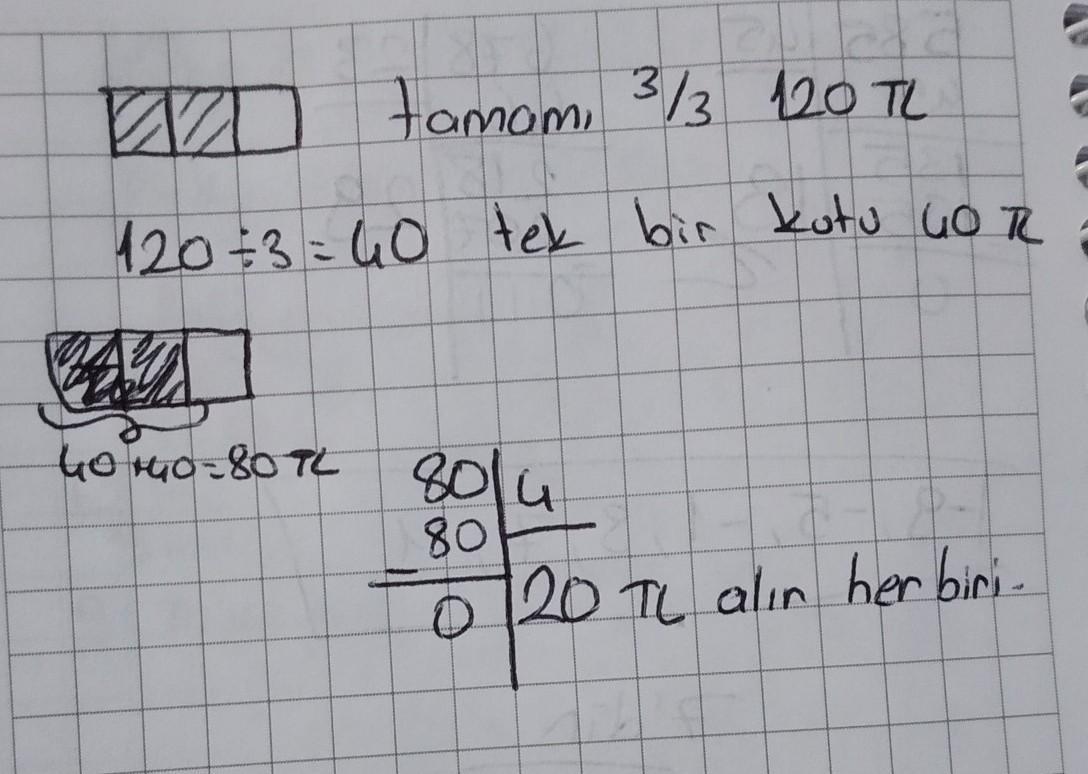 tamamı 3/3 120 TL
120÷3=40 tek bir kutu 40 TL
40+40=80 TL
80 4
-80
0 20 TL alır her biri.